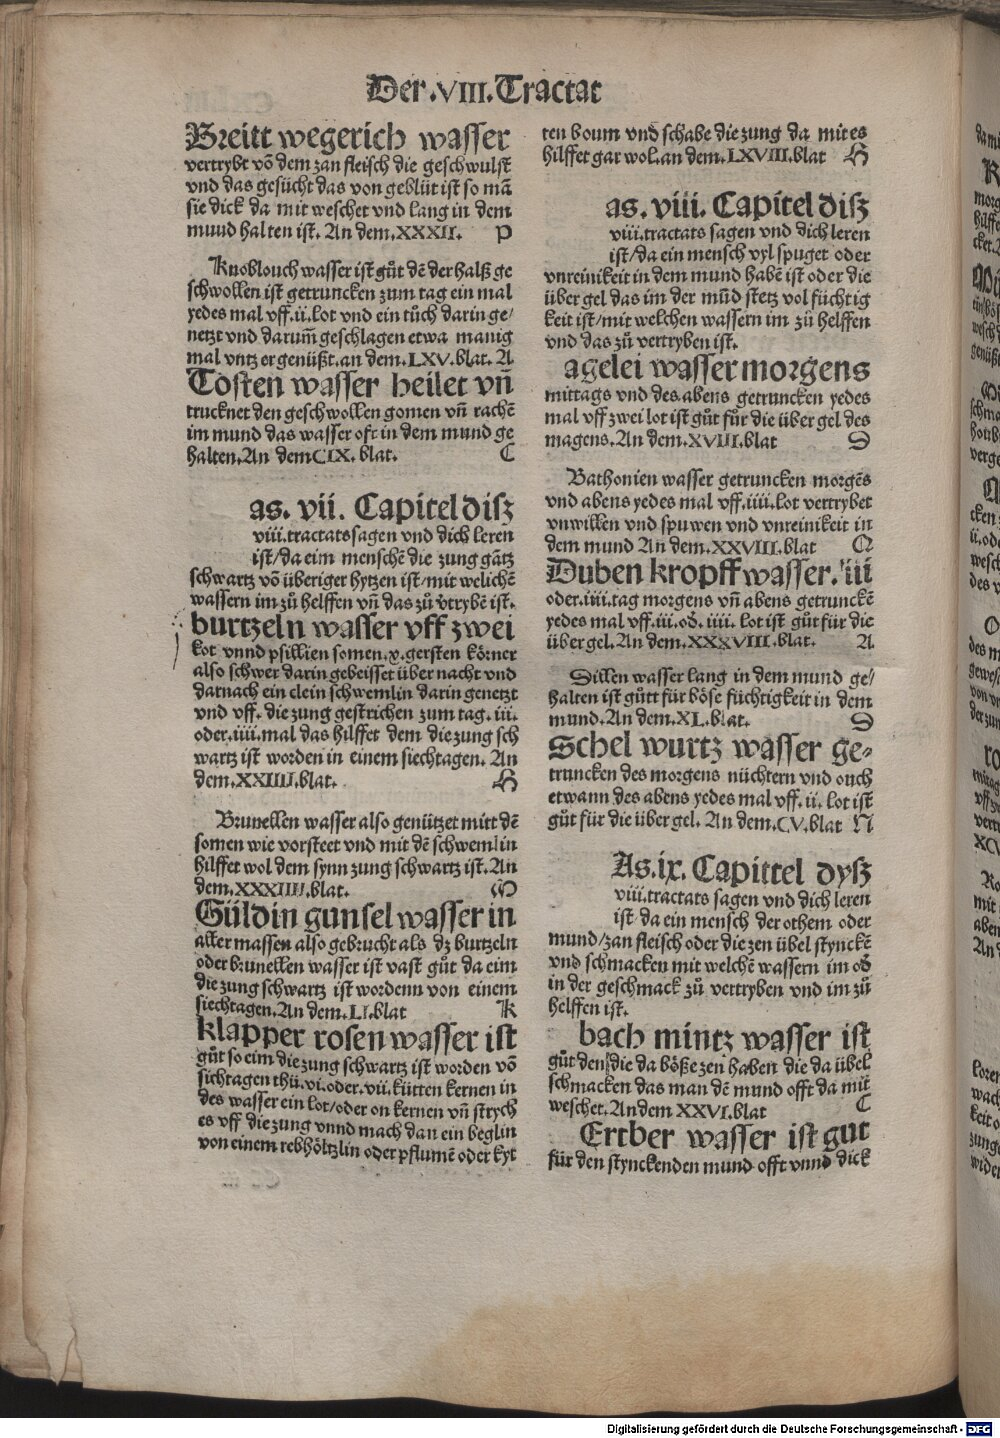 Der .VIII. Tractat
Breitt wegerich wasser
vertrybt võ dem zan fleisch die geschwulst
vnd das gesücht das von geblüt ist so mã
sie dick da mit weschet vnd lang in dem
mund halten ist. An dem .XXXII. P
Knoblouch wasser ist gůt dẽ der halß ge
schwollen ist getruncken zum tag ein mal
yedes mal vff .ii. lot vnd ein tůch darin ge/
netzt vnd darum̃ geschlagen etwa manig
mal vntz er genüßt. an dem .LXV. blat. A
Tosten wasser heilet vñ
trucknet den geschwollen gomen vñ rachẽ
im mund das wasser oft in dem mund ge
halten. An dem CIX. blat. C
as. vii. Capitel disz
viii. tractats sagen vnd dich leren
ist/da eim menschẽ die zung gãtz
schwartz võ überiger hytzen ist/mit welichẽ
wassern im zů helffen vñ das zů v̾trybẽ ist.
burtzeln wasser vff zwei
kot vnnd psillien somen .x. gersten körner
also schwer darin gebeisset über nacht vnd
darnach ein clein schwemlin darin genetzt
vnd vff. die zung gestrichen zum tag .iii.
oder .iiii. mal das hilffet dem die zung sch
wartz ist worden in einem siechtagen. An
dem .XXIIII. blat. H
Brunellen wasser also genützet mitt dẽ
somen wie vorsteet vnd mit dẽ schwemlin
hilffet wol dem synn zung schwartz ist. An
dem .XXXIIII. blat. M
Güldin gunsel wasser in
aller massen also gebrucht als dz burtzeln
oder brunellen wasser ist vast gůt da eim
die zung schwartz ist wordenn von einem
siechtagen. An dem .LI. blat K
klapper rosen wasser ist
gůt so eim die zung schwartz ist worden võ
sichtagen thü .vi. oder .vii. kütten kernen in
des wasser ein lot/oder on kernen vñ strych
es vff die zung vnnd mach dan ein beglin
von einem rebhöltzlin oder pflumẽ oder kyt
ten boum vnd schabe die zung da mit es
hilffet gar wol. an dem .LXVIII. blat H
as. viii. Capitel disz
viii. tractats sagen vnd dich leren
ist/da ein mensch vyl spuget oder
vnreinikeit in dem mund habẽ ist oder die
über gel das im der mũd stetz vol füchtig
keit ist/mit welchen wassern im zů helffen
vnd das zů vertryben ist.
agelei wasser morgens
mittags vnd des abens getruncken yedes
mal vff zwei lot ist gůt für die über gel des
magens. An dem .XVIII. blat S
Bathonien wasser getruncken morgẽs
vnd abens yedes mal vff .iiii. lot vertrybet
vnwillen vnd spuwen vnd vnreinikeit in
dem mund An dem .XXVIII. blat Q
Duben kropff wasser. iii
oder .iiii. tag morgens vñ abens getrunckẽ
yedes mal vff .iii. od̾. iiii. lot ist gůt für die
über gel. An dem .XXXVIII. blat. A
Dillen wasser lang in dem mund ge/
halten ist gůtt für böse füchtigkeit in dem
mund. An dem .XL. blat. S
Schel wurtz wasser ge-
truncken des morgens nüchtern vnd ouch
etwann des abens yedes mal vff .ii. lot ist
gůt für die über gel. An dem .CV. blat N
As. ix. Capittel dysz
viii. tractats sagen vnd dich leren
ist da ein mensch der othem oder
mund/zan fleisch oder die zen übel stynckẽ
vnd schmacken mit welchẽ wassern im od̾
in der geschmack zů vertryben vnd im zů
helffen ist.
bach mintz wasser ist
gůt den die da böße zen haben die da übel
schmacken das man dẽ mund offt da mit
weschet. An dem XXVI. blat C
Ertber wasser ist gut
für den stynckenden mund offt vnnd dick
Digitalisierung gefördert durch die Deutsche Forschungsgemeinschaft - DFG